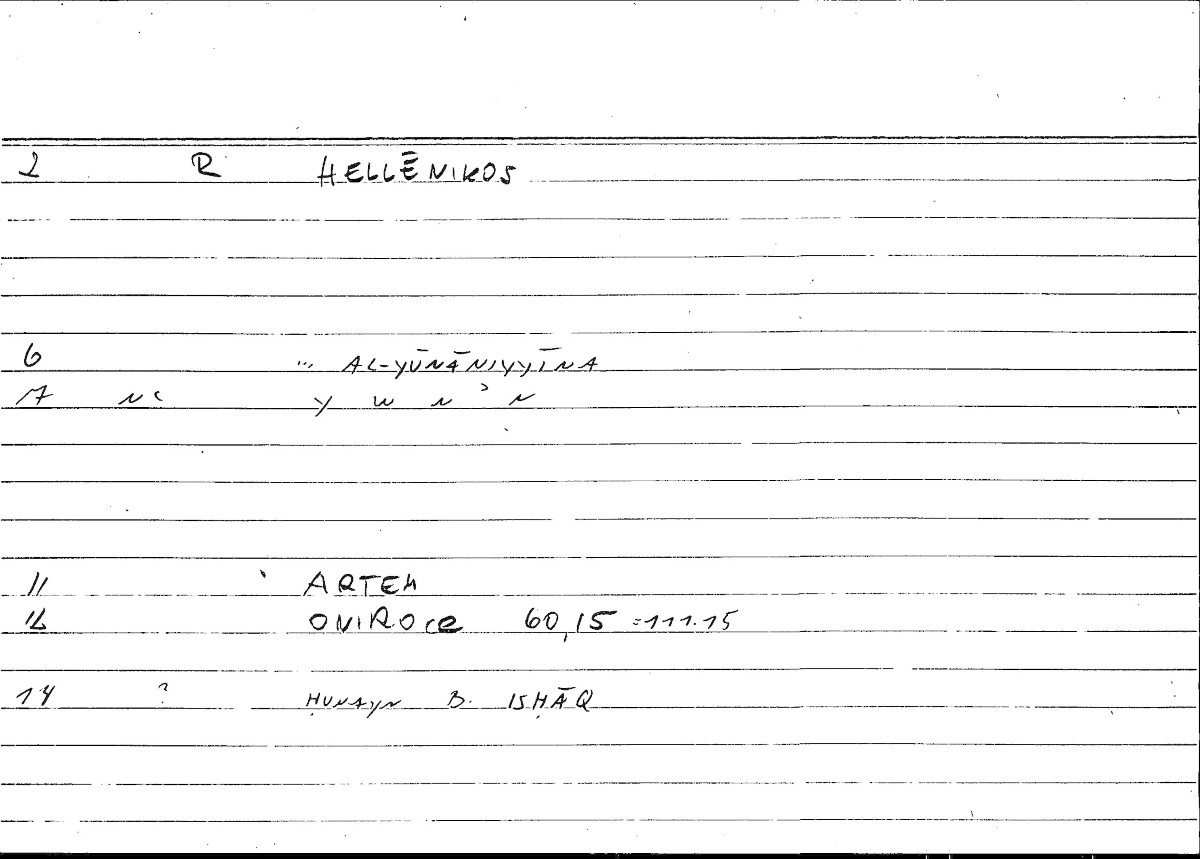 2 R HELLĒNIKOS
6 ... AL-YŪNĀNIYYĪNA
17 NC Y W N ʾ N
11 ARTEM
12 ONIROCR 60,15 =111.15
14 ? ḤUNAYN B. ISḤĀQ